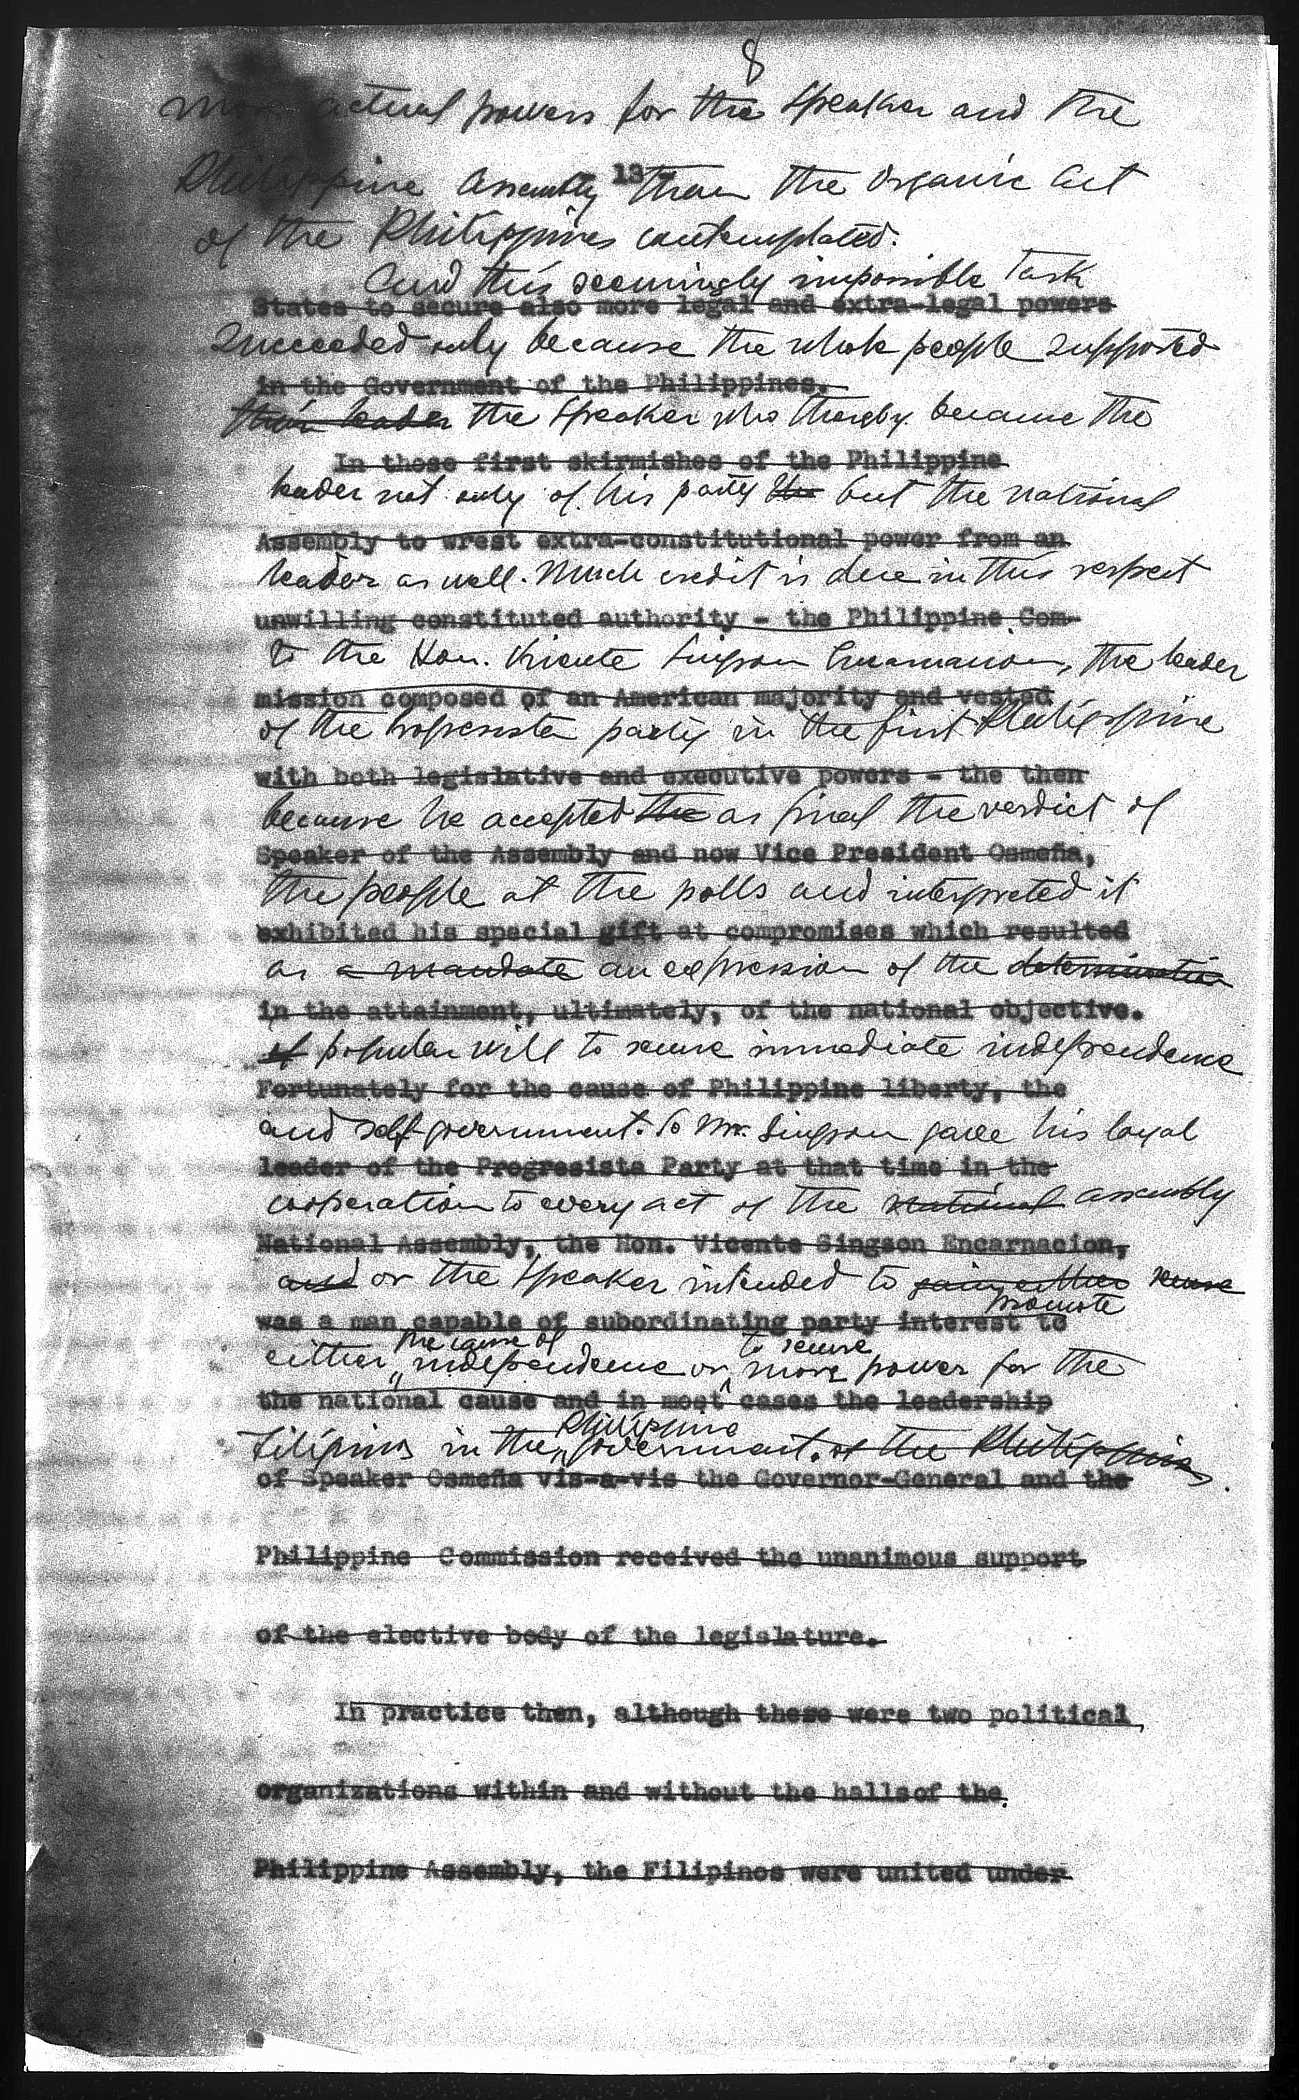 8
more actual powers for the Speaker and the
13
Philippine Assembly than the Organic Act
of the Philippines contemplated.
And this seemingly impossible task
States to secure also more legal and extra-legal powers
succeeded only because the whole people supported
in the Government of the Philippines.
their leader the Speaker who thereby became the
In those first skirmishes of the Philippine
leader not only of his party the but the national
Assembly to wrest extra-constitutional power from an
leader as well. Much credit is due in this respect
unwilling constituted authority - the Philippine Com-
to the Hon. Vicente Singson Encarnacion, the leader
mission composed of an American majority and vested
of the Progresista party in the first Philippine
with both legislative and executive powers - the then
because he accepted the as final the verdict of
Speaker of the Assembly and now Vice President Osmeña,
the people at the polls and interpreted it
exhibited his special gift at compromises which resulted
as a mandate an expression of the determination
in the attainment, ultimately, of the national objective.
of popular will to secure immediate independence
Fortunately for the cause of Philippine liberty, the
and self-government. So Mr. Singson gave his loyal
leader of the Progresista Party at that time in the
cooperation to every act of the national assembly
National Assembly, the Hon. Vicente Singson Encarnacion,
and or the Speaker intended to gain either secure
promote
was a man capable of subordinating party interest to
the cause of to secure
either independence or more power for the
the national cause and in most cases the leadership
Philippine
Filipinos in the government. of the Philippines
of Speaker Osmeña vis-a-vis the Governor-General and the
Philippine Commission received the unanimous support
of the elective body of the legislature.
In practice then, although there were two political
organizations within and without the hallsof the
Philippine Assembly, the Filipinos were united under